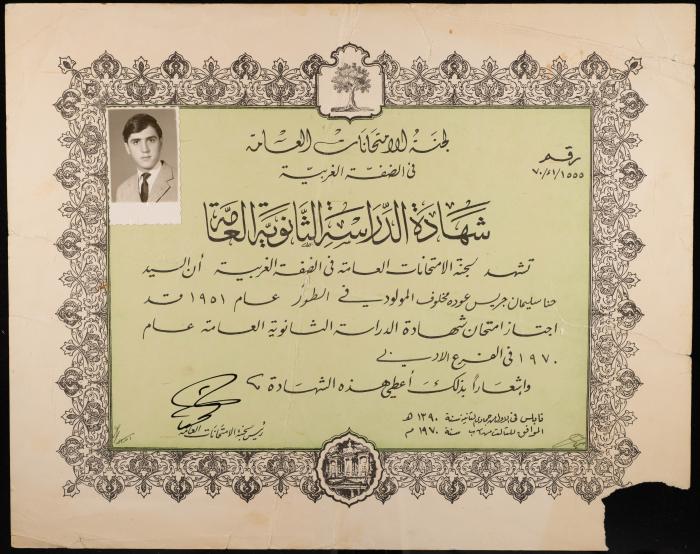 لجنة الامتحانات العامة
في الضفة الغربية
رقم
٧٠/٤١/١٥٥٥
شهادة الدراسة الثانوية العامة
تشهد لجنة الامتحانات العامة في الضفة الغربية أن السيد
حنا سليمان جريس عوده مخلوف المولود في الطور عام ١٩٥١ قد
اجتاز امتحان شهادة الدراسة الثانوية العامة عام
١٩٧٠ في الفرع الادبي
واشعاراً بذلك أعطي هذه الشهادة
نابلس في الاول من جمادى الثانية سنة ١٣٩٠ هـ
الموافق للثالث من آب سنة ١٩٧٠ م
رئيس لجنة الامتحانات العامة